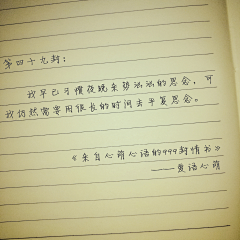 第四十九封：
我早已习惯夜晚来势汹汹的思念，可
我仍然需要用很长的时间去平复思念。
《来自心萌心话的999封情书》
——男话心萌